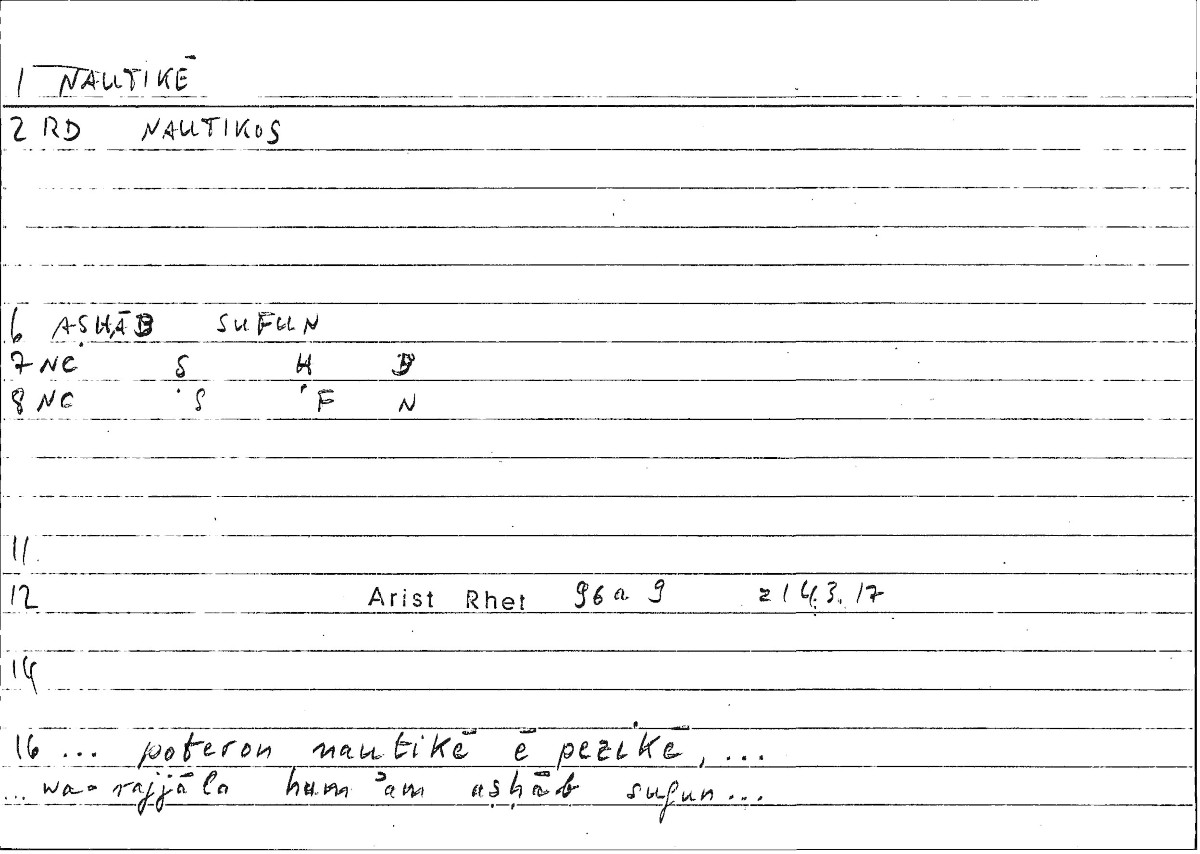 1 NAUTIKĒ
2 RD NAUTIKOS
6 AṢḤĀB SUFUN
7 NC Ṣ Ḥ B
8 NC S F N
11
12 Arist Rhet 96a9 214.3.17
14
16 ... poteron nautikē ē pezikē, ...
... wa-rajjāla hum ʾam aṣḥāb sufun ...